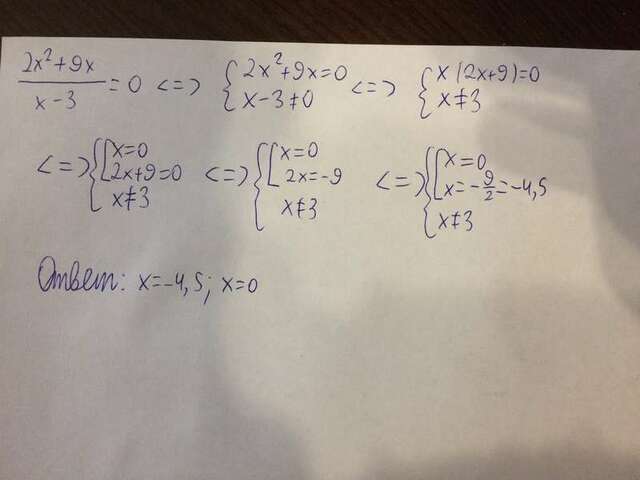 2x²+9x / x-3 = 0 <=> { 2x²+9x=0 ; x-3≠0 <=> { x(2x+9)=0 ; x≠3
<=> { [ x=0 ; 2x+9=0 ; x≠3 <=> { [ x=0 ; 2x=-9 ; x≠3 <=> { [ x=0 ; x=-9/2=-4,5 ; x≠3
Ответ: x=-4,5; x=0